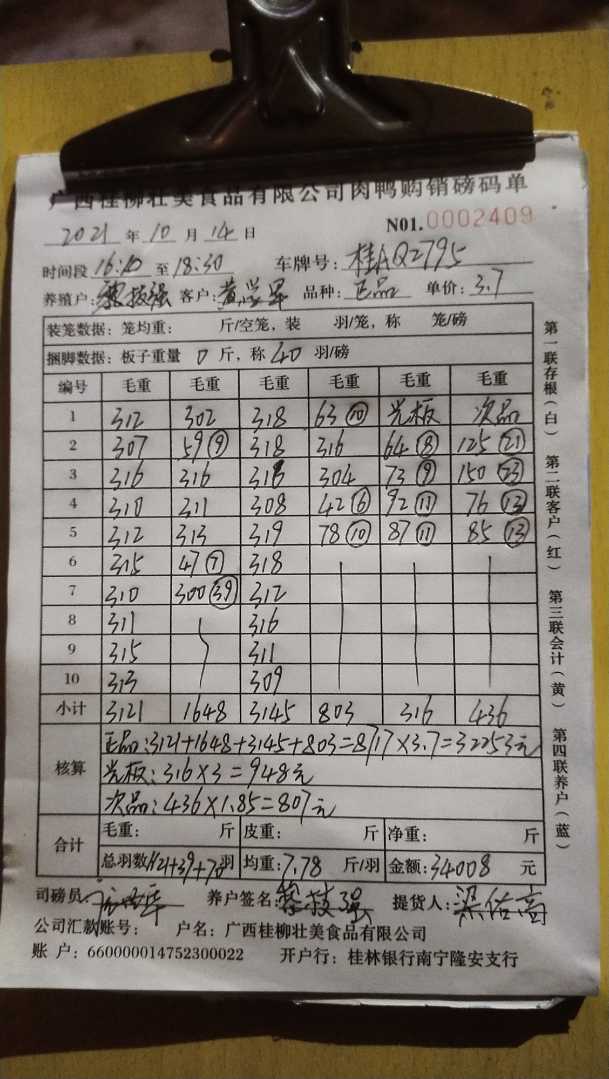 广西桂柳壮美食品有限公司肉鸭购销磅码单
2021 年 10 月 14 日 N01.0002409
时间段 16:10 至 18:30 车牌号: 桂AQ2795
养殖户: 黎技强 客户: 品种: 正品 单价: 3.7
装笼数据: 笼均重: 斤/空笼, 装 羽/笼, 称 笼/磅
捆脚数据: 板子重量 0 斤, 称 40 羽/磅
编号 毛重 毛重 毛重 毛重 毛重 毛重
1 312 302 318 63⑩ 光板 次品
2 307 59⑨ 318 316 64⑧ 125㉑
3 316 316 316 304 73⑨ 150㉓
4 310 311 308 42⑥ 92⑪ 76⑬
5 312 313 319 78⑩ 87⑪ 85⑬
6 315 47⑦ 318
7 310 300㊴ 312
8 311 316
9 315 311
10 313 309
小计 3121 1648 3145 803 316 436
核算
正品:3121+1648+3145+803=8717×3.7=32253元
光板:316×3=948元
次品:436×1.85=807元
合计
毛重: 斤 皮重: 斤 净重: 斤
总羽数 1121+39+70羽 均重:7.78 斤/羽 金额:34008 元
司磅员 养户签名: 黎技强 提货人: 梁佑高
公司汇款账号: 户名: 广西桂柳壮美食品有限公司
账 户: 660000014752300022 开户行: 桂林银行南宁隆安支行
第一联存根(白)
第二联客户(红)
第三联会计(黄)
第四联养户(蓝)